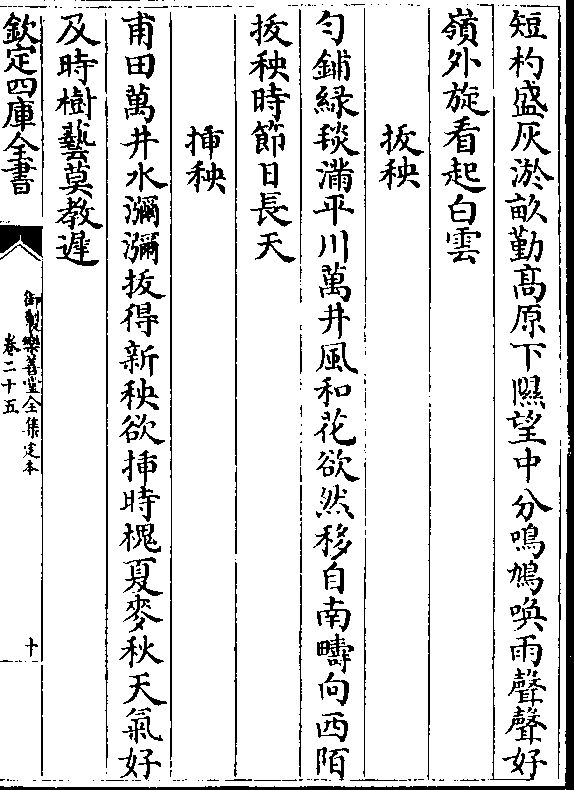 短杓盛灰淤畝勤高原下隰望中分鳴鳩喚雨聲聲好
嶺外旋看起白雲
拔秧
勻鋪緑毯滿平川萬井風和花欲然移自南疇向西陌
拔秧時節日長天
挿秧
甫田萬井水瀰瀰拔得新秧欲挿時槐夏麥秋天氣好
及時樹藝莫教遲
欽定四庫全書
御製樂善堂全集定本
卷二十五
十